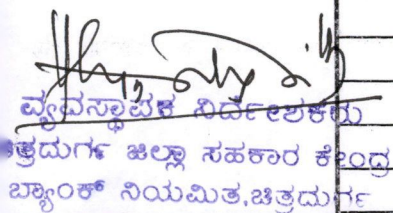 ವ್ಯವಸ್ಥಾಪಕ ನಿರ್ದೇಶಕರು
ತ್ರದುರ್ಗ ಜಿಲ್ಲಾ ಸಹಕಾರ ಕೇಂದ್ರ
ಬ್ಯಾಂಕ್ ನಿಯಮಿತ,ಚಿತ್ರದುರ್ಗ